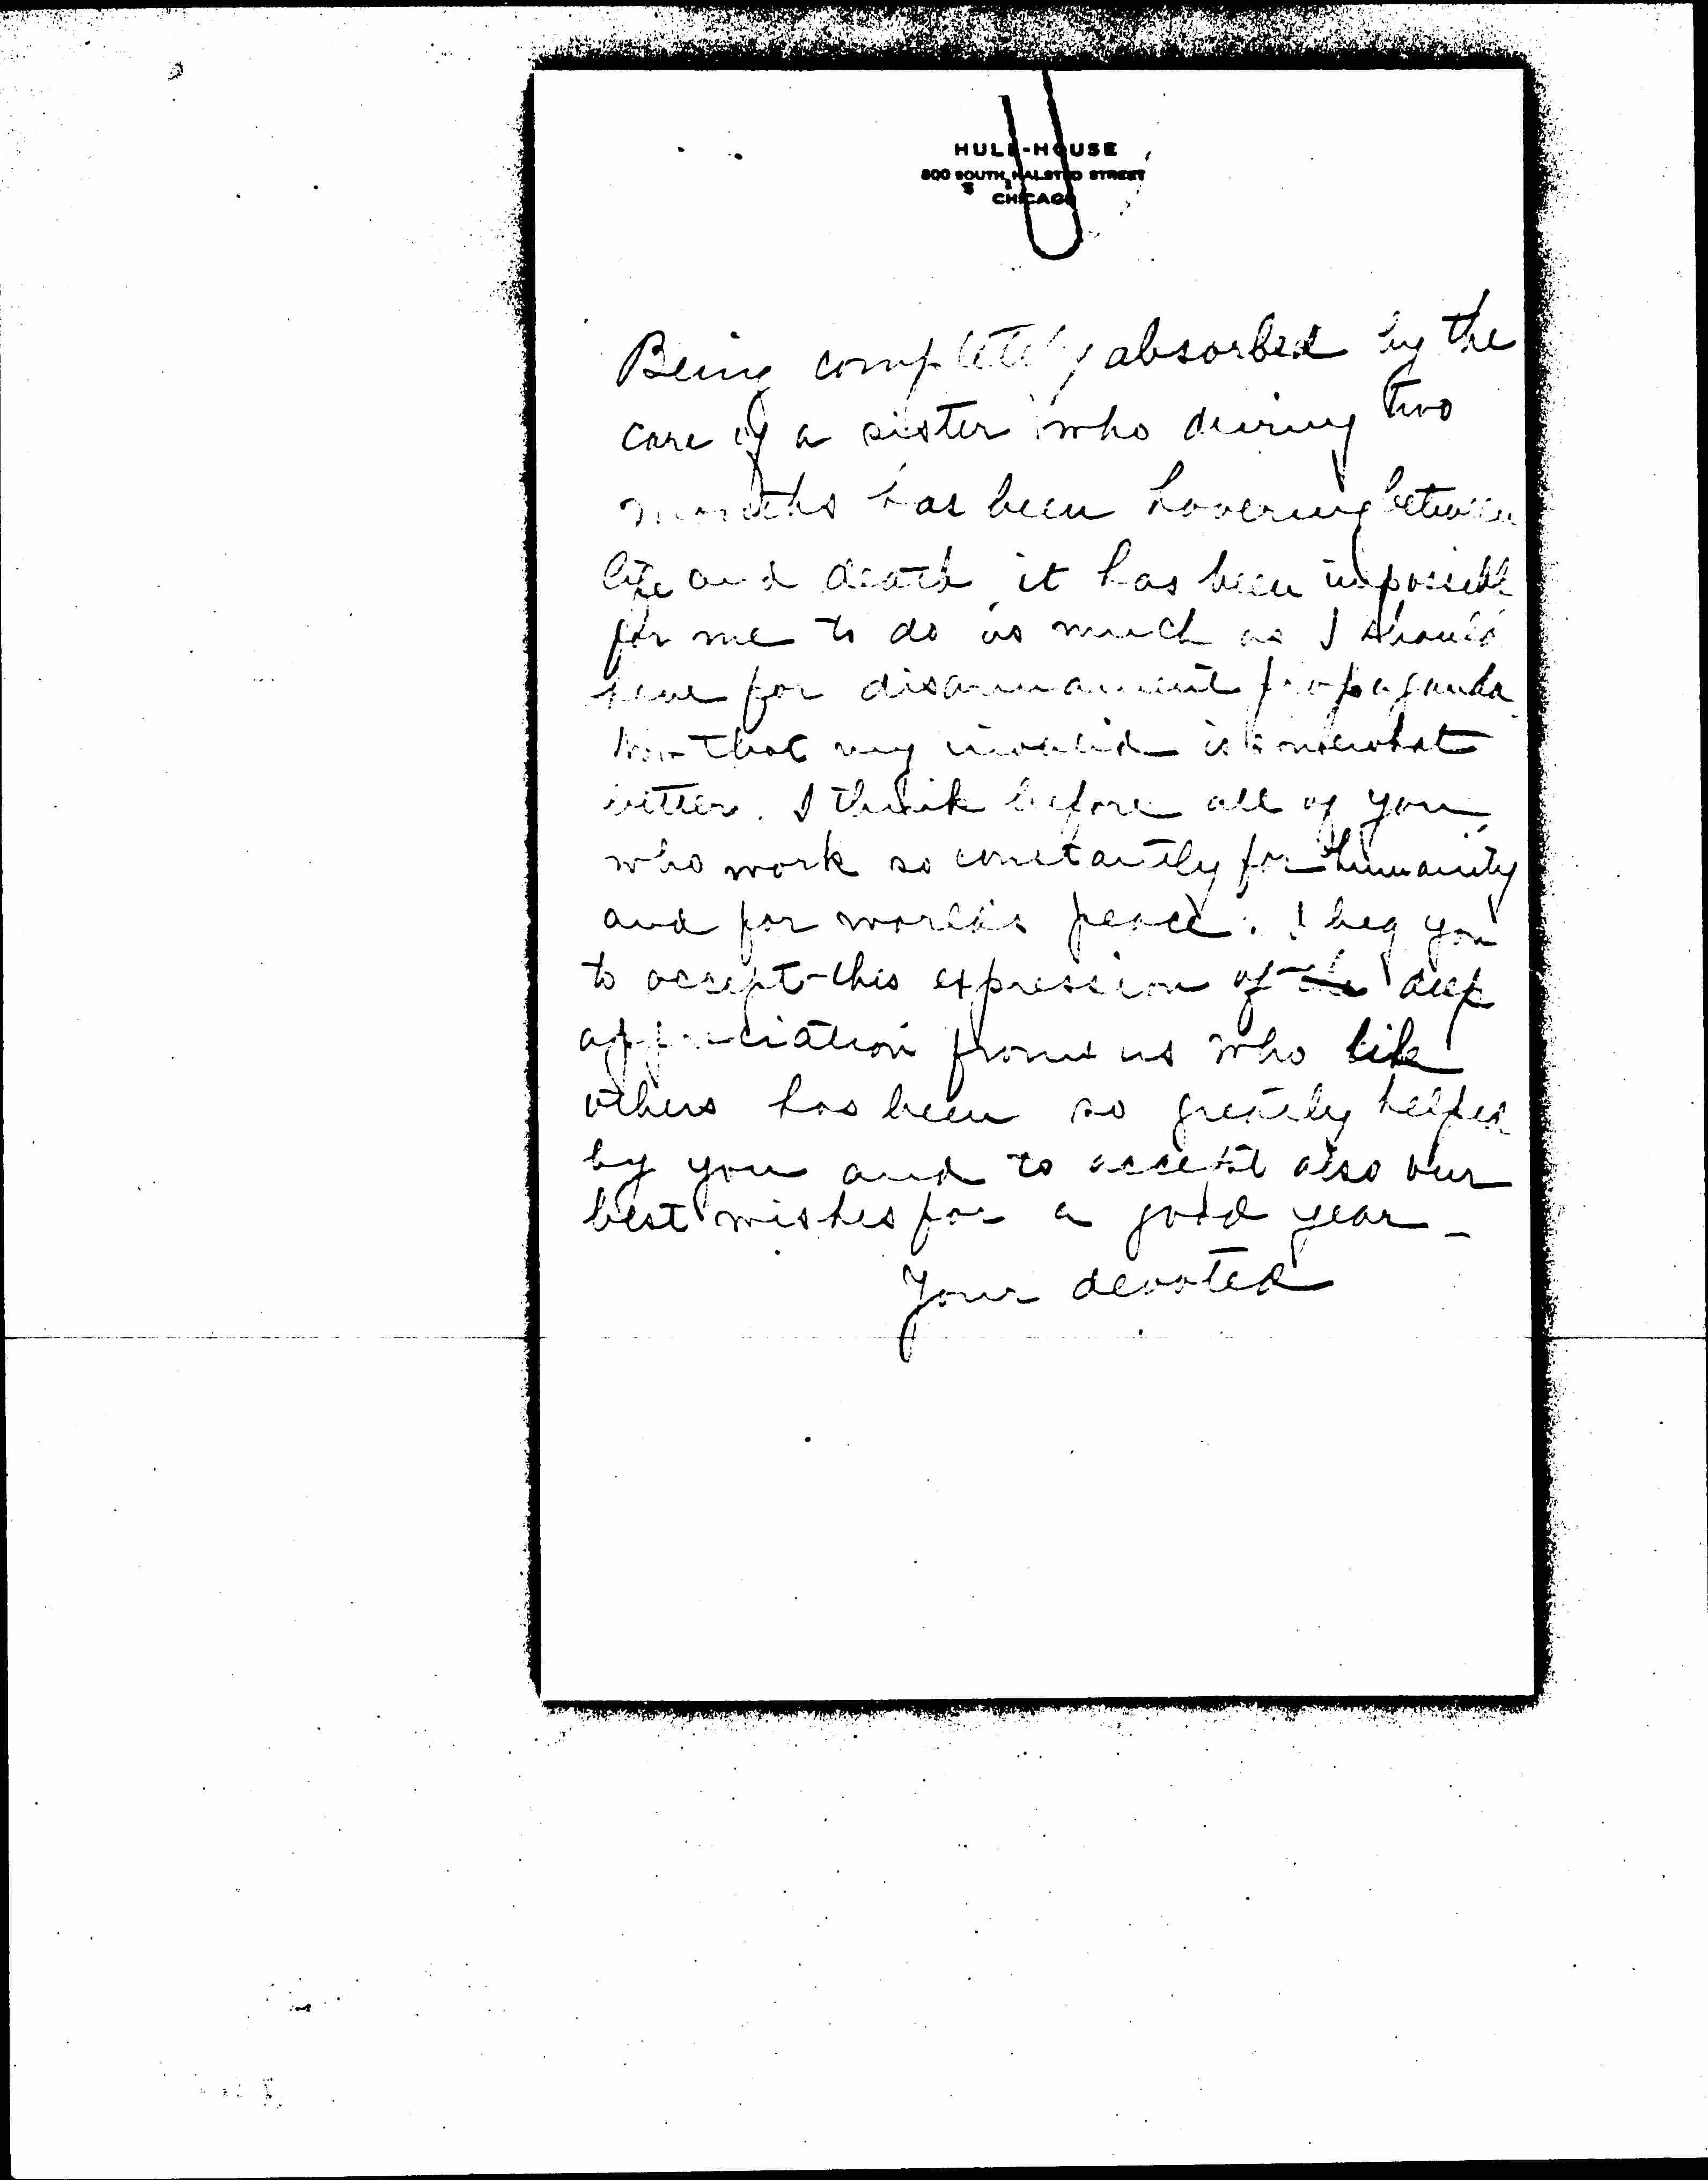 HULL-HOUSE
800 SOUTH HALSTED STREET
CHICAGO
Being completely absorbed by the
care of a sister who during two
months has been hovering between
life and death it has been impossible
for me to do as much as I should
have for disarmament propaganda.
Now that my invalid is somewhat
better. I think before all of you
who work so constantly for humanity
and for world's peace. I beg you
to accept this expression of the deep
appreciation from us who like
others has been so greatly helped
by you and to accept also our
best wishes for a good year -
Your devoted